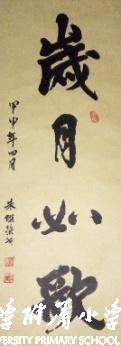 歲月如歌
甲申年四月
學附屬小學
VERSITY PRIMARY SCHOOL